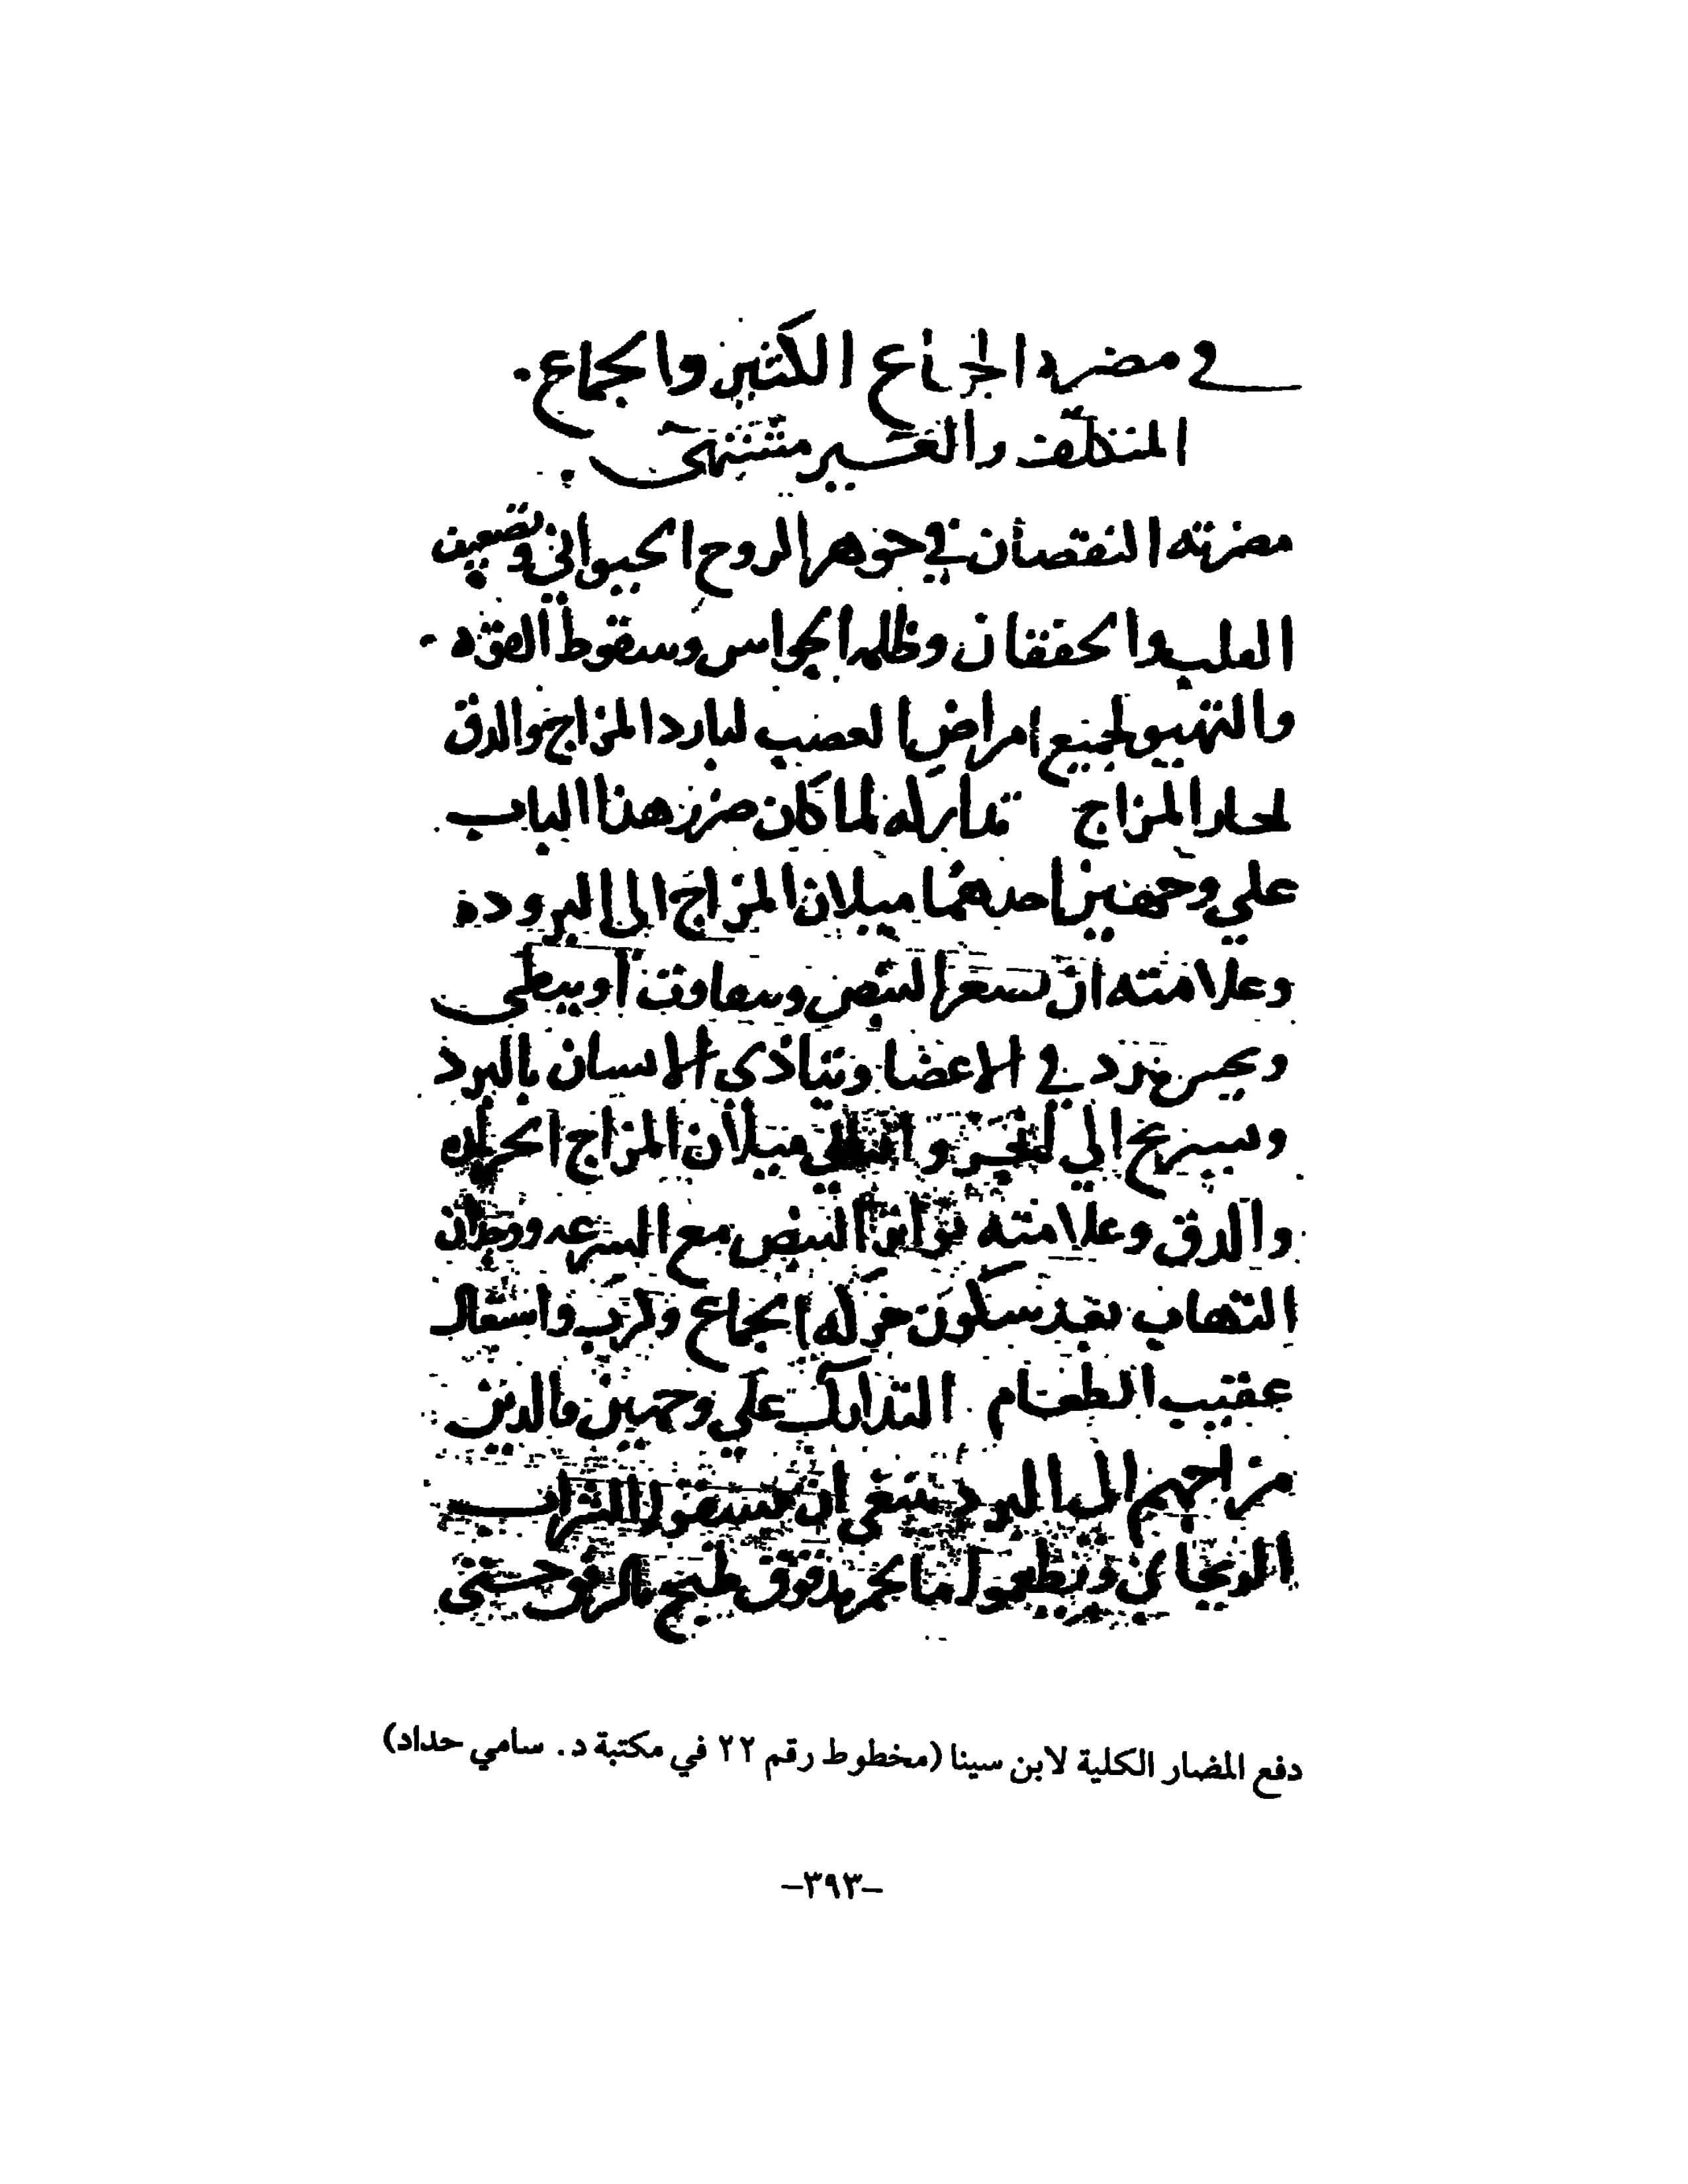 في مضرة الجماع الكثير والجماع
المتكلف والغير مشتهى
مضرته النقصان في جوهر الروح الحيواني وتضعيف
القلب والخفقان وظلمه الحواس وسقوط القوه
والتهييو لجميع امراض العصب لبارد المزاج والدق
لحار المزاج تداركه لما كان ضرر هذا الباب
علي وجهين احدهما ميلان المزاج الى البروده
وعلامته ان يصغر النبض ويتفاوت او يبطي
ويحس ببرد في الاعضا ويتاذى الانسان بالبرد
ويستريح الي ميلان المزاج الحراره
والدق وعلامته تواتر النبض مع السرعه ووجدان
التهاب بعد سكون حركه الجماع وكرب واشتعال
عقيب الطعام التدارك علي وجهين فالذين
مزاجهم الى البرد ينبغي ان يسقوا الشراب
الريحاني ويطعموا
دفع المضار الكلية لابن سينا (مخطوط رقم ٢٢ في مكتبة د. سامي حداد)
-٣٩٣-